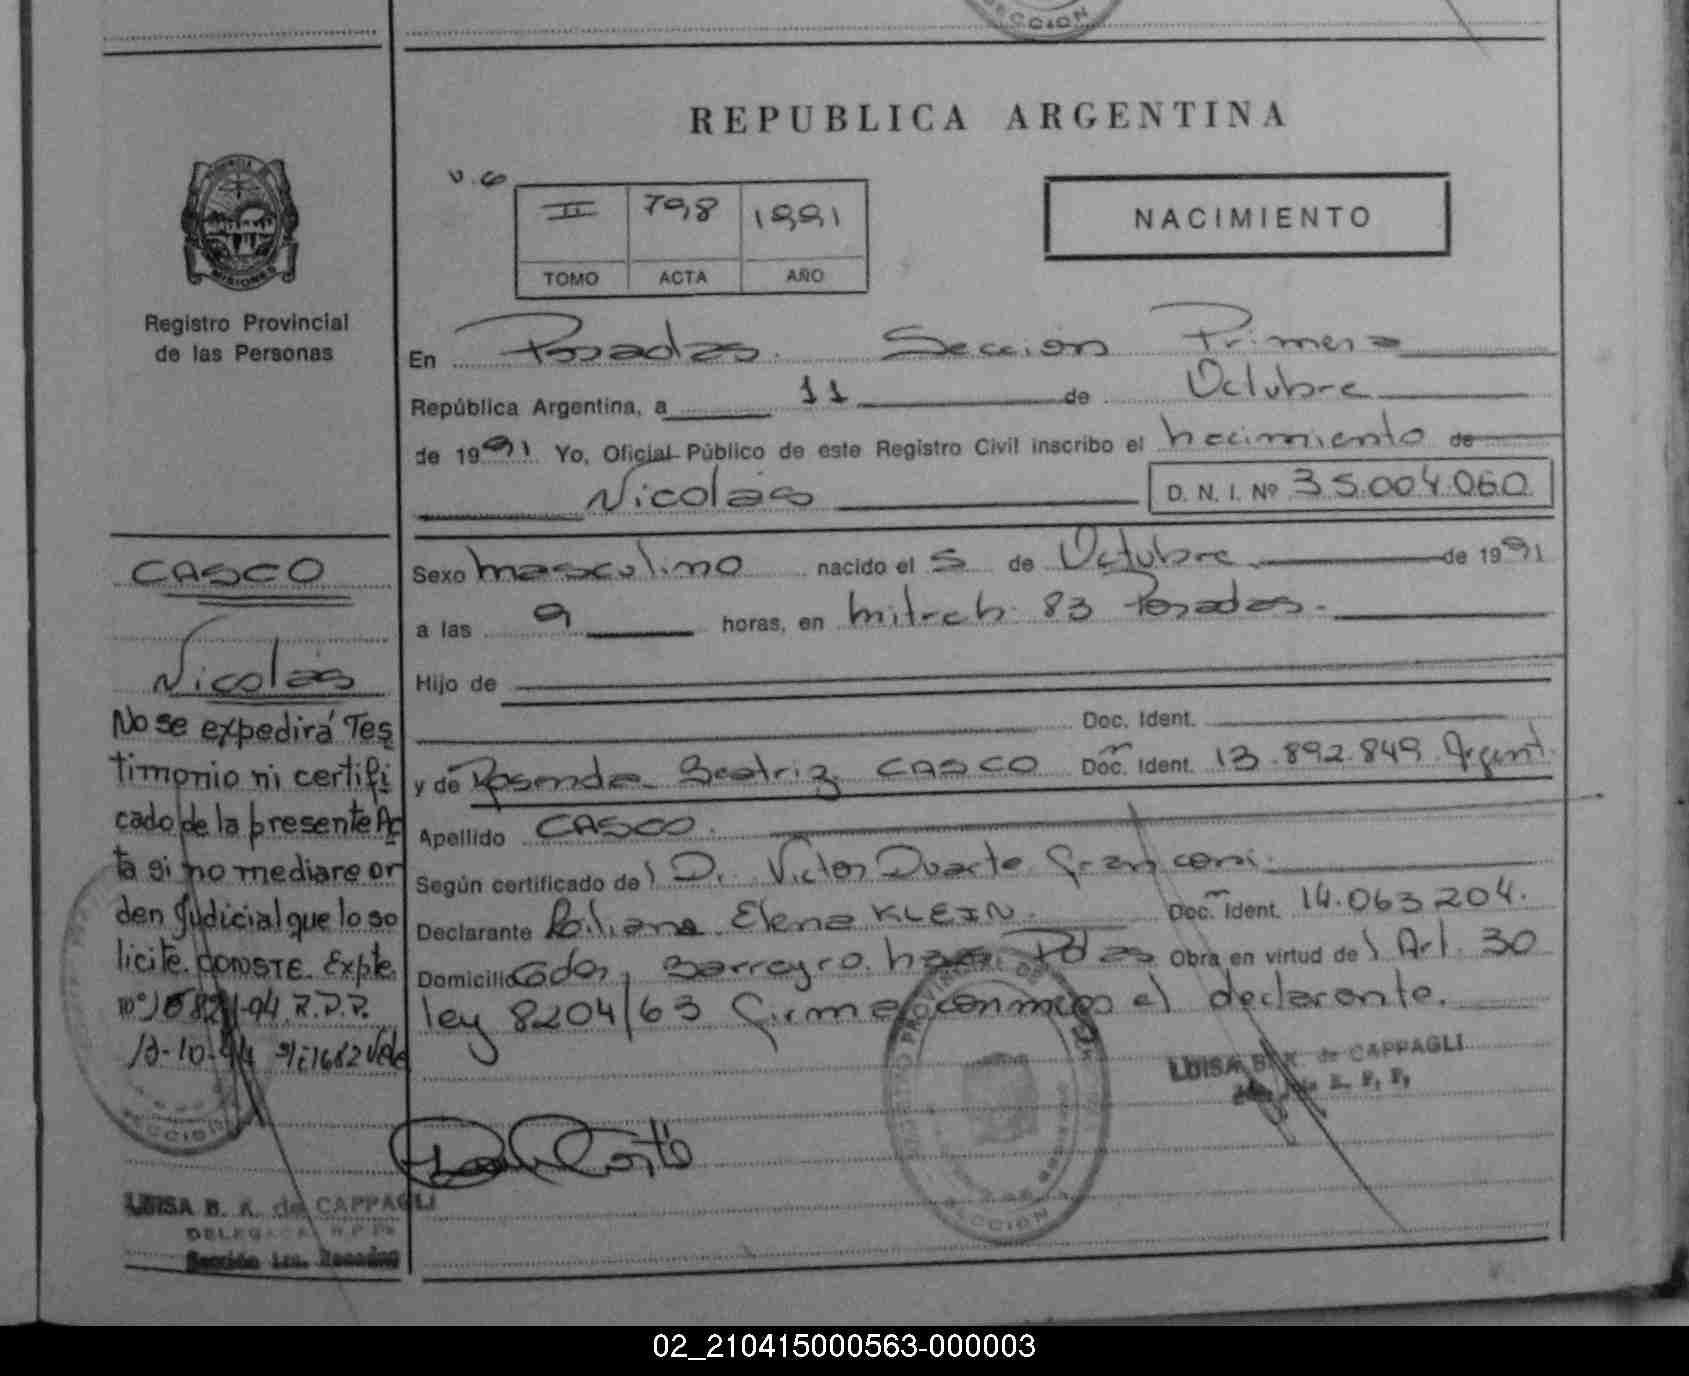 SECCION
REPUBLICA ARGENTINA
PROVINCIA DE
MISIONES
Registro Provincial
de las Personas
II 798 1991
TOMO ACTA AÑO
NACIMIENTO
En Posadas. Seccion Primera
República Argentina, a 11 de Octubre
de 1991 Yo, Oficial Público de este Registro Civil inscribo el nacimiento de
Nicolás D. N. I. Nº 35.004.060
CASCO
Nicolás
No se expedirá Tes
timonio ni certifi
cado de la presente Ac
ta si no mediare or
den Judicial que lo so
licite. CONSTE. Expte.
SECCION
LUISA B. K. de CAPPAGLI
Sección 1ra. Posadas
Sexo masculino nacido el 5 de Octubre de 1991
a las 9 horas, en Mitreh 83 Posadas.
Hijo de
Doc. Ident.
y de Rosenda Beatriz CASCO Doc. Ident. 13.892.849 Argent.
Apellido CASCO.
Según certificado del D. Victor Duarte
Declarante Liliana Elena KLEIN. Doc. Ident. 14.063.204.
Domicilio Barreyro. Pdas Obra en virtud del Art. 30
ley 8204/63 firma conmigo el declarante.
LUISA B. K. de CAPPAGLI
SECCION
02_210415000563-000003